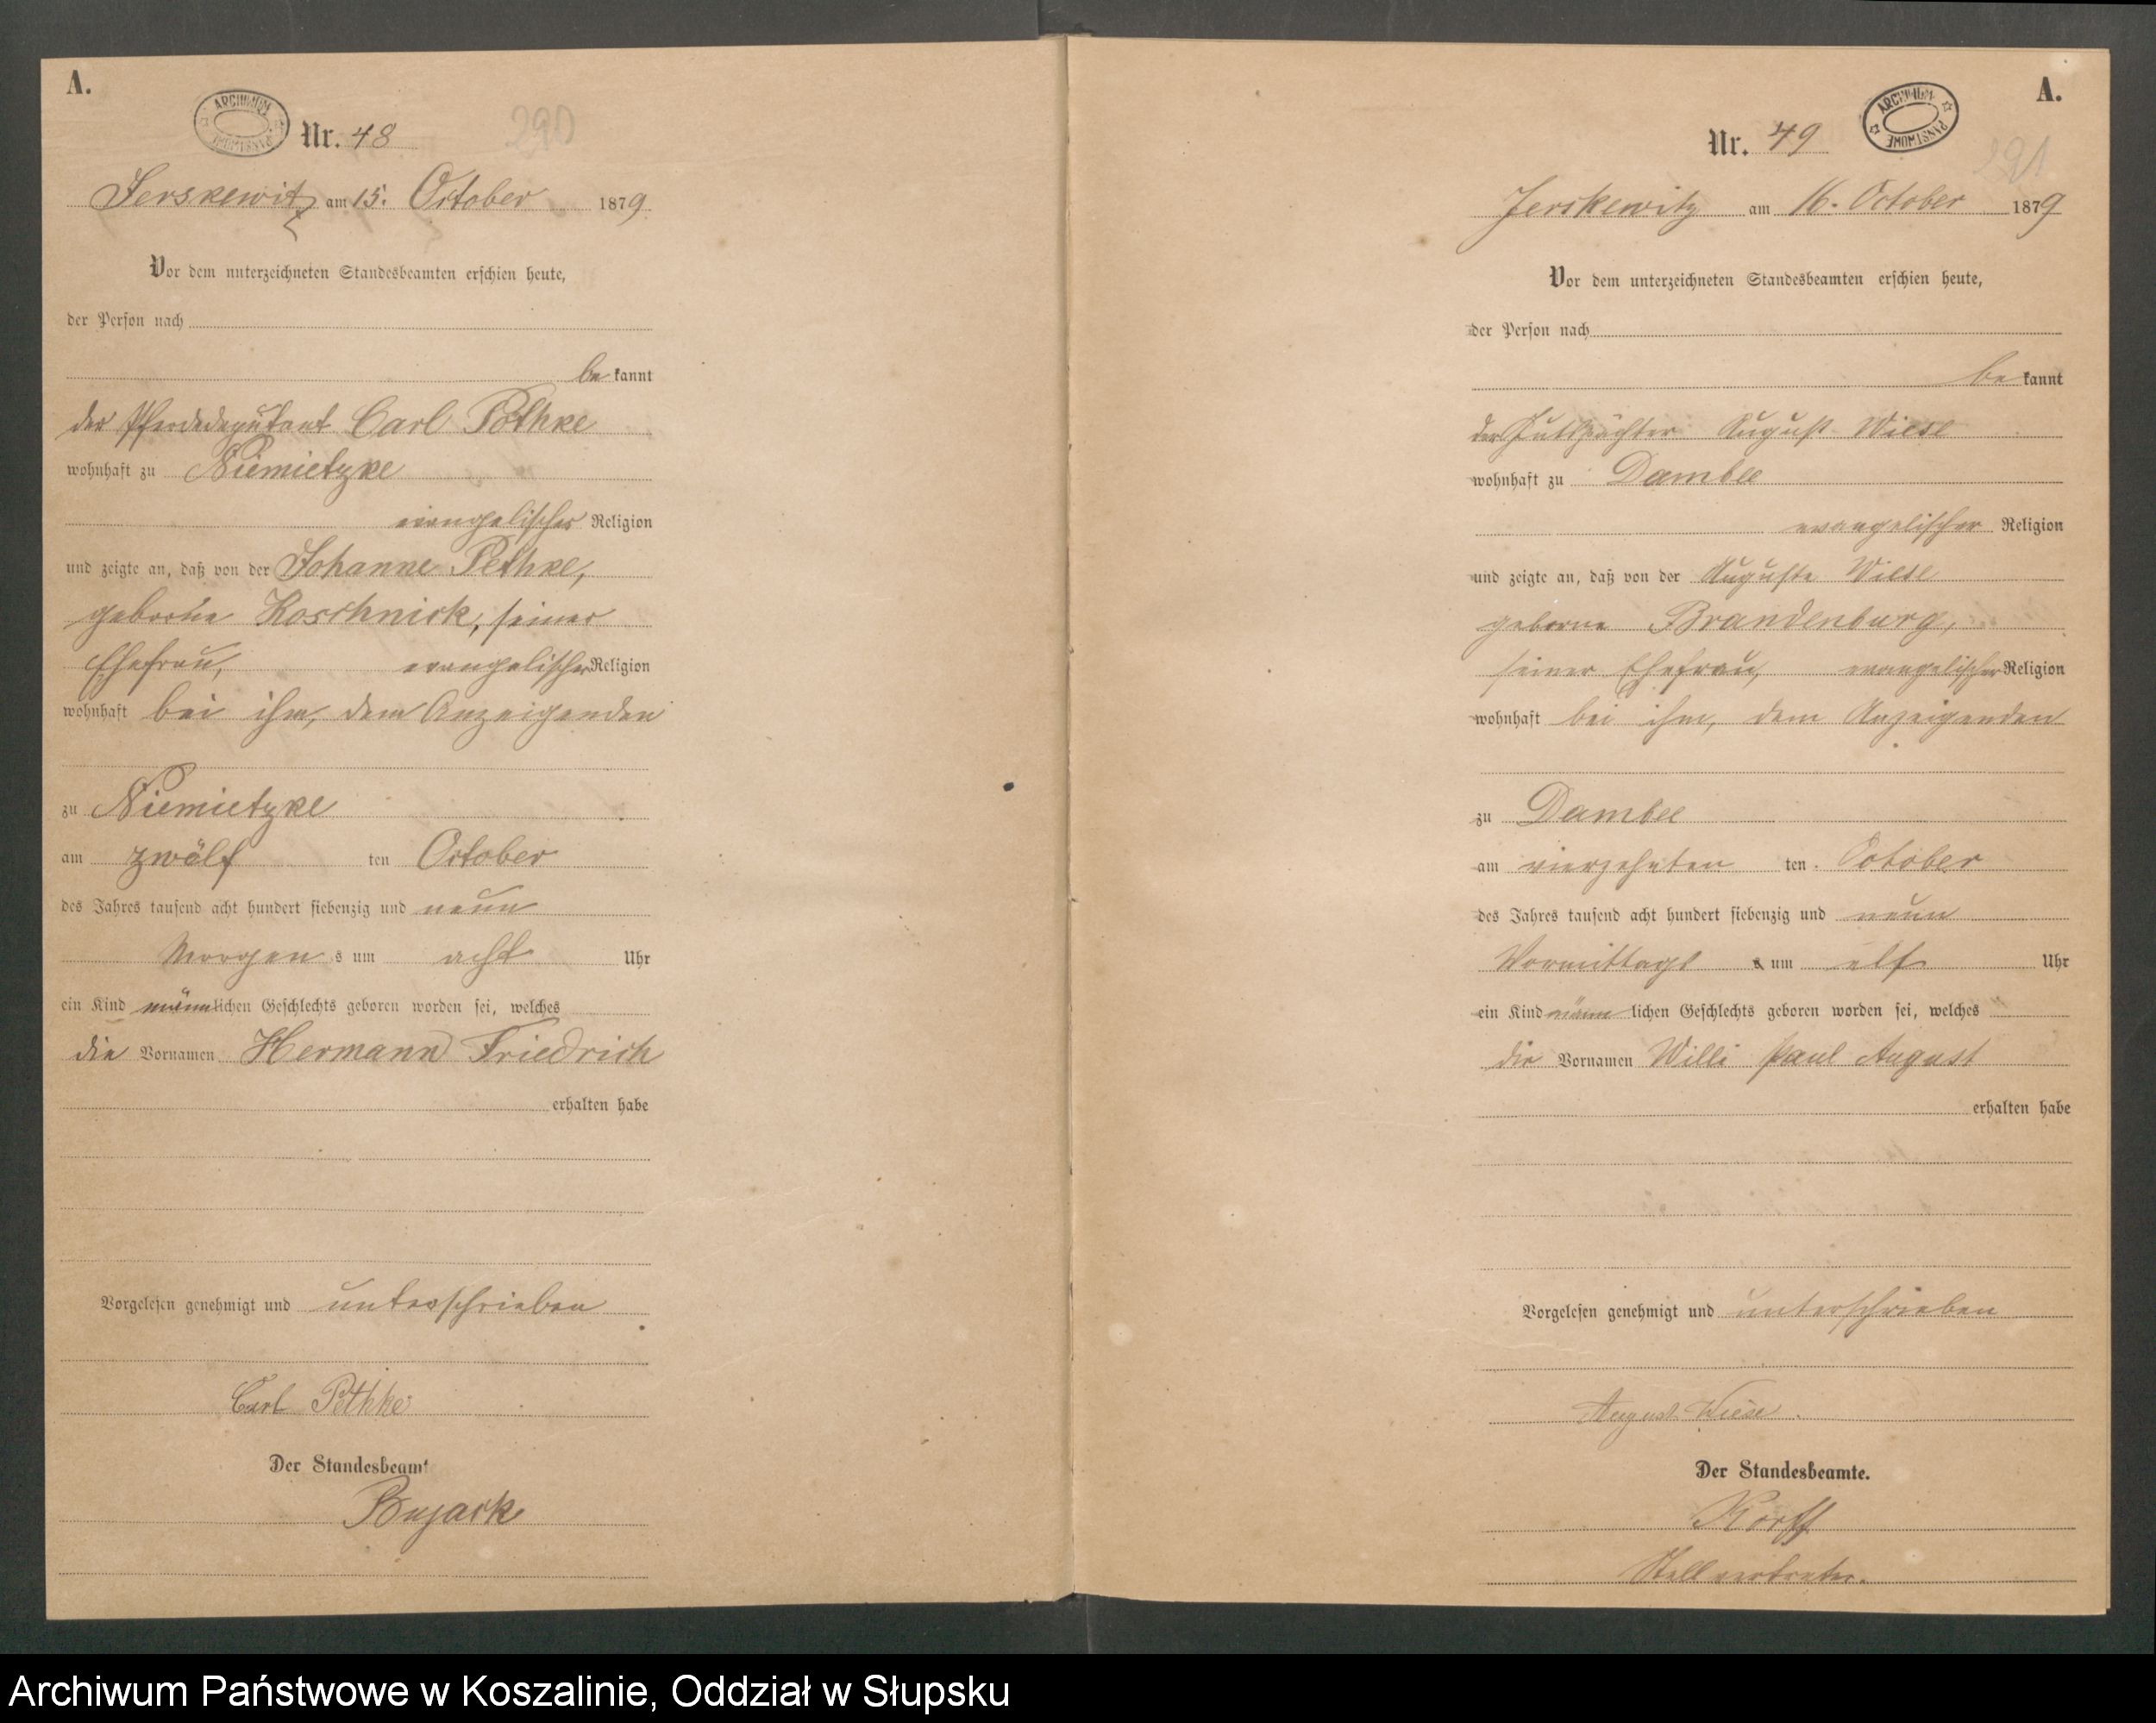 A.
ARCHIWUM PAŃSTWOWE
Nr. 48
290
Jerskewitz am 15. October 1879
Vor dem unterzeichneten Standesbeamten erschien heute,
der Person nach
be kannt
der Pferdedeputant Carl Pethke
wohnhaft zu Niemietzke
evangelischer Religion
und zeigte an, daß von der Johanne Pethke,
geborene Koschnick, seiner
Ehefrau, evangelischer Religion
wohnhaft bei ihm, dem Anzeigenden
zu Niemietzke
am zwölf ten October
des Jahres tausend acht hundert siebenzig und neun
Morgen s um acht Uhr
ein Kind männlichen Geschlechts geboren worden sei, welches
die Vornamen Hermann Friedrich
erhalten habe
Vorgelesen genehmigt und unterschrieben
Carl Pethke
Der Standesbeamt
A.
ARCHIWUM PAŃSTWOWE
Nr. 49
291
Jerskewitz am 16. October 1879
Vor dem unterzeichneten Standesbeamten erschien heute,
der Person nach
be kannt
der Gutspächter August Wiese
wohnhaft zu Dambee
evangelischer Religion
und zeigte an, daß von der Auguste Wiese
geborne Brandenburg,
seiner Ehefrau, evangelischer Religion
wohnhaft bei ihm, dem Anzeigenden
zu Dambee
am vierzehnten ten October
des Jahres tausend acht hundert siebenzig und neun
Vormittags s um elf Uhr
ein Kind männ lichen Geschlechts geboren worden sei, welches
die Vornamen Willi Paul August
erhalten habe
Vorgelesen genehmigt und unterschrieben
August Wiese.
Der Standesbeamte.
Korff
Stellvertreter.
Archiwum Państwowe w Koszalinie, Oddział w Słupsku